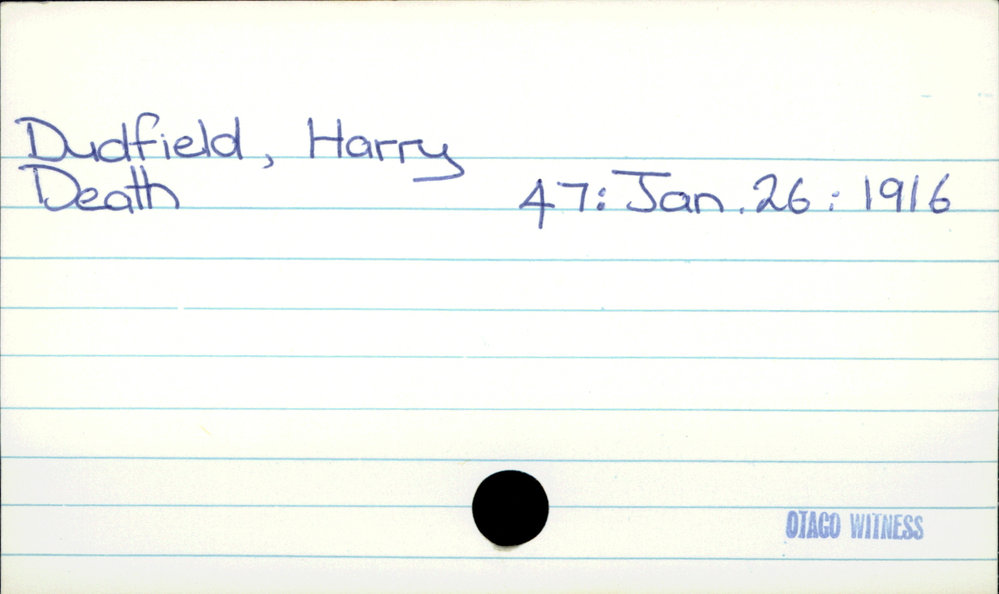 Dudfield, Harry
Death 47: Jan. 26: 1916
OTAGO WITNESS